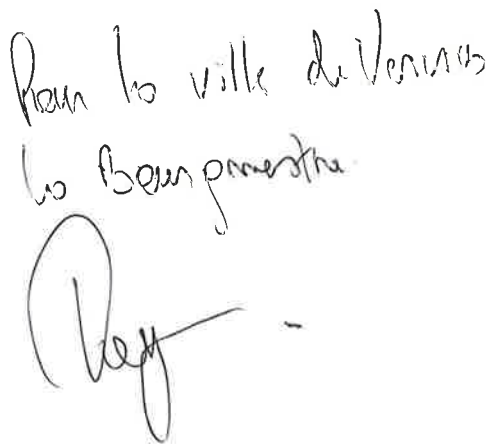 Pour la ville de Verviers
la Bourgmestre